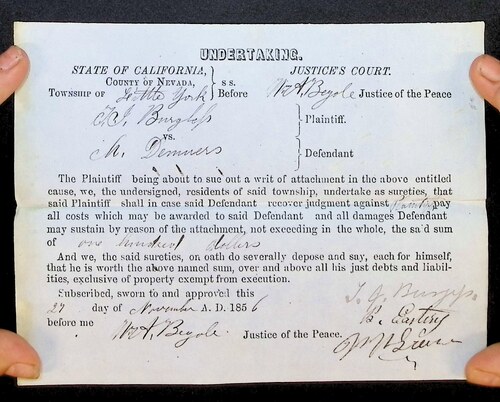 UNDERTAKING.
STATE OF CALIFORNIA, JUSTICE'S COURT.
COUNTY OF NEVADA, ss.
TOWNSHIP OF Little York Before Wm A. Begole Justice of the Peace
T. J. Burgess Plaintiff.
vs.
M. Demners Defendant
The Plaintiff being about to sue out a writ of attachment in the above entitled
cause, we, the undersigned, residents of said township, undertake as sureties, that
said Plaintiff shall in case said Defendant recover judgment against pay
all costs which may be awarded to said Defendant and all damages Defendant
may sustain by reason of the attachment, not exceeding in the whole, the said sum
of one hundred dollars
And we, the said sureties, on oath do severally depose and say, each for himself,
that he is worth the above named sum, over and above all his just debts and liabil-
ities, exclusive of property exempt from execution.
Subscribed, sworn to and approved this
27 day of November A. D. 1856
before me Wm A. Begole Justice of the Peace.
T. J. Burgess